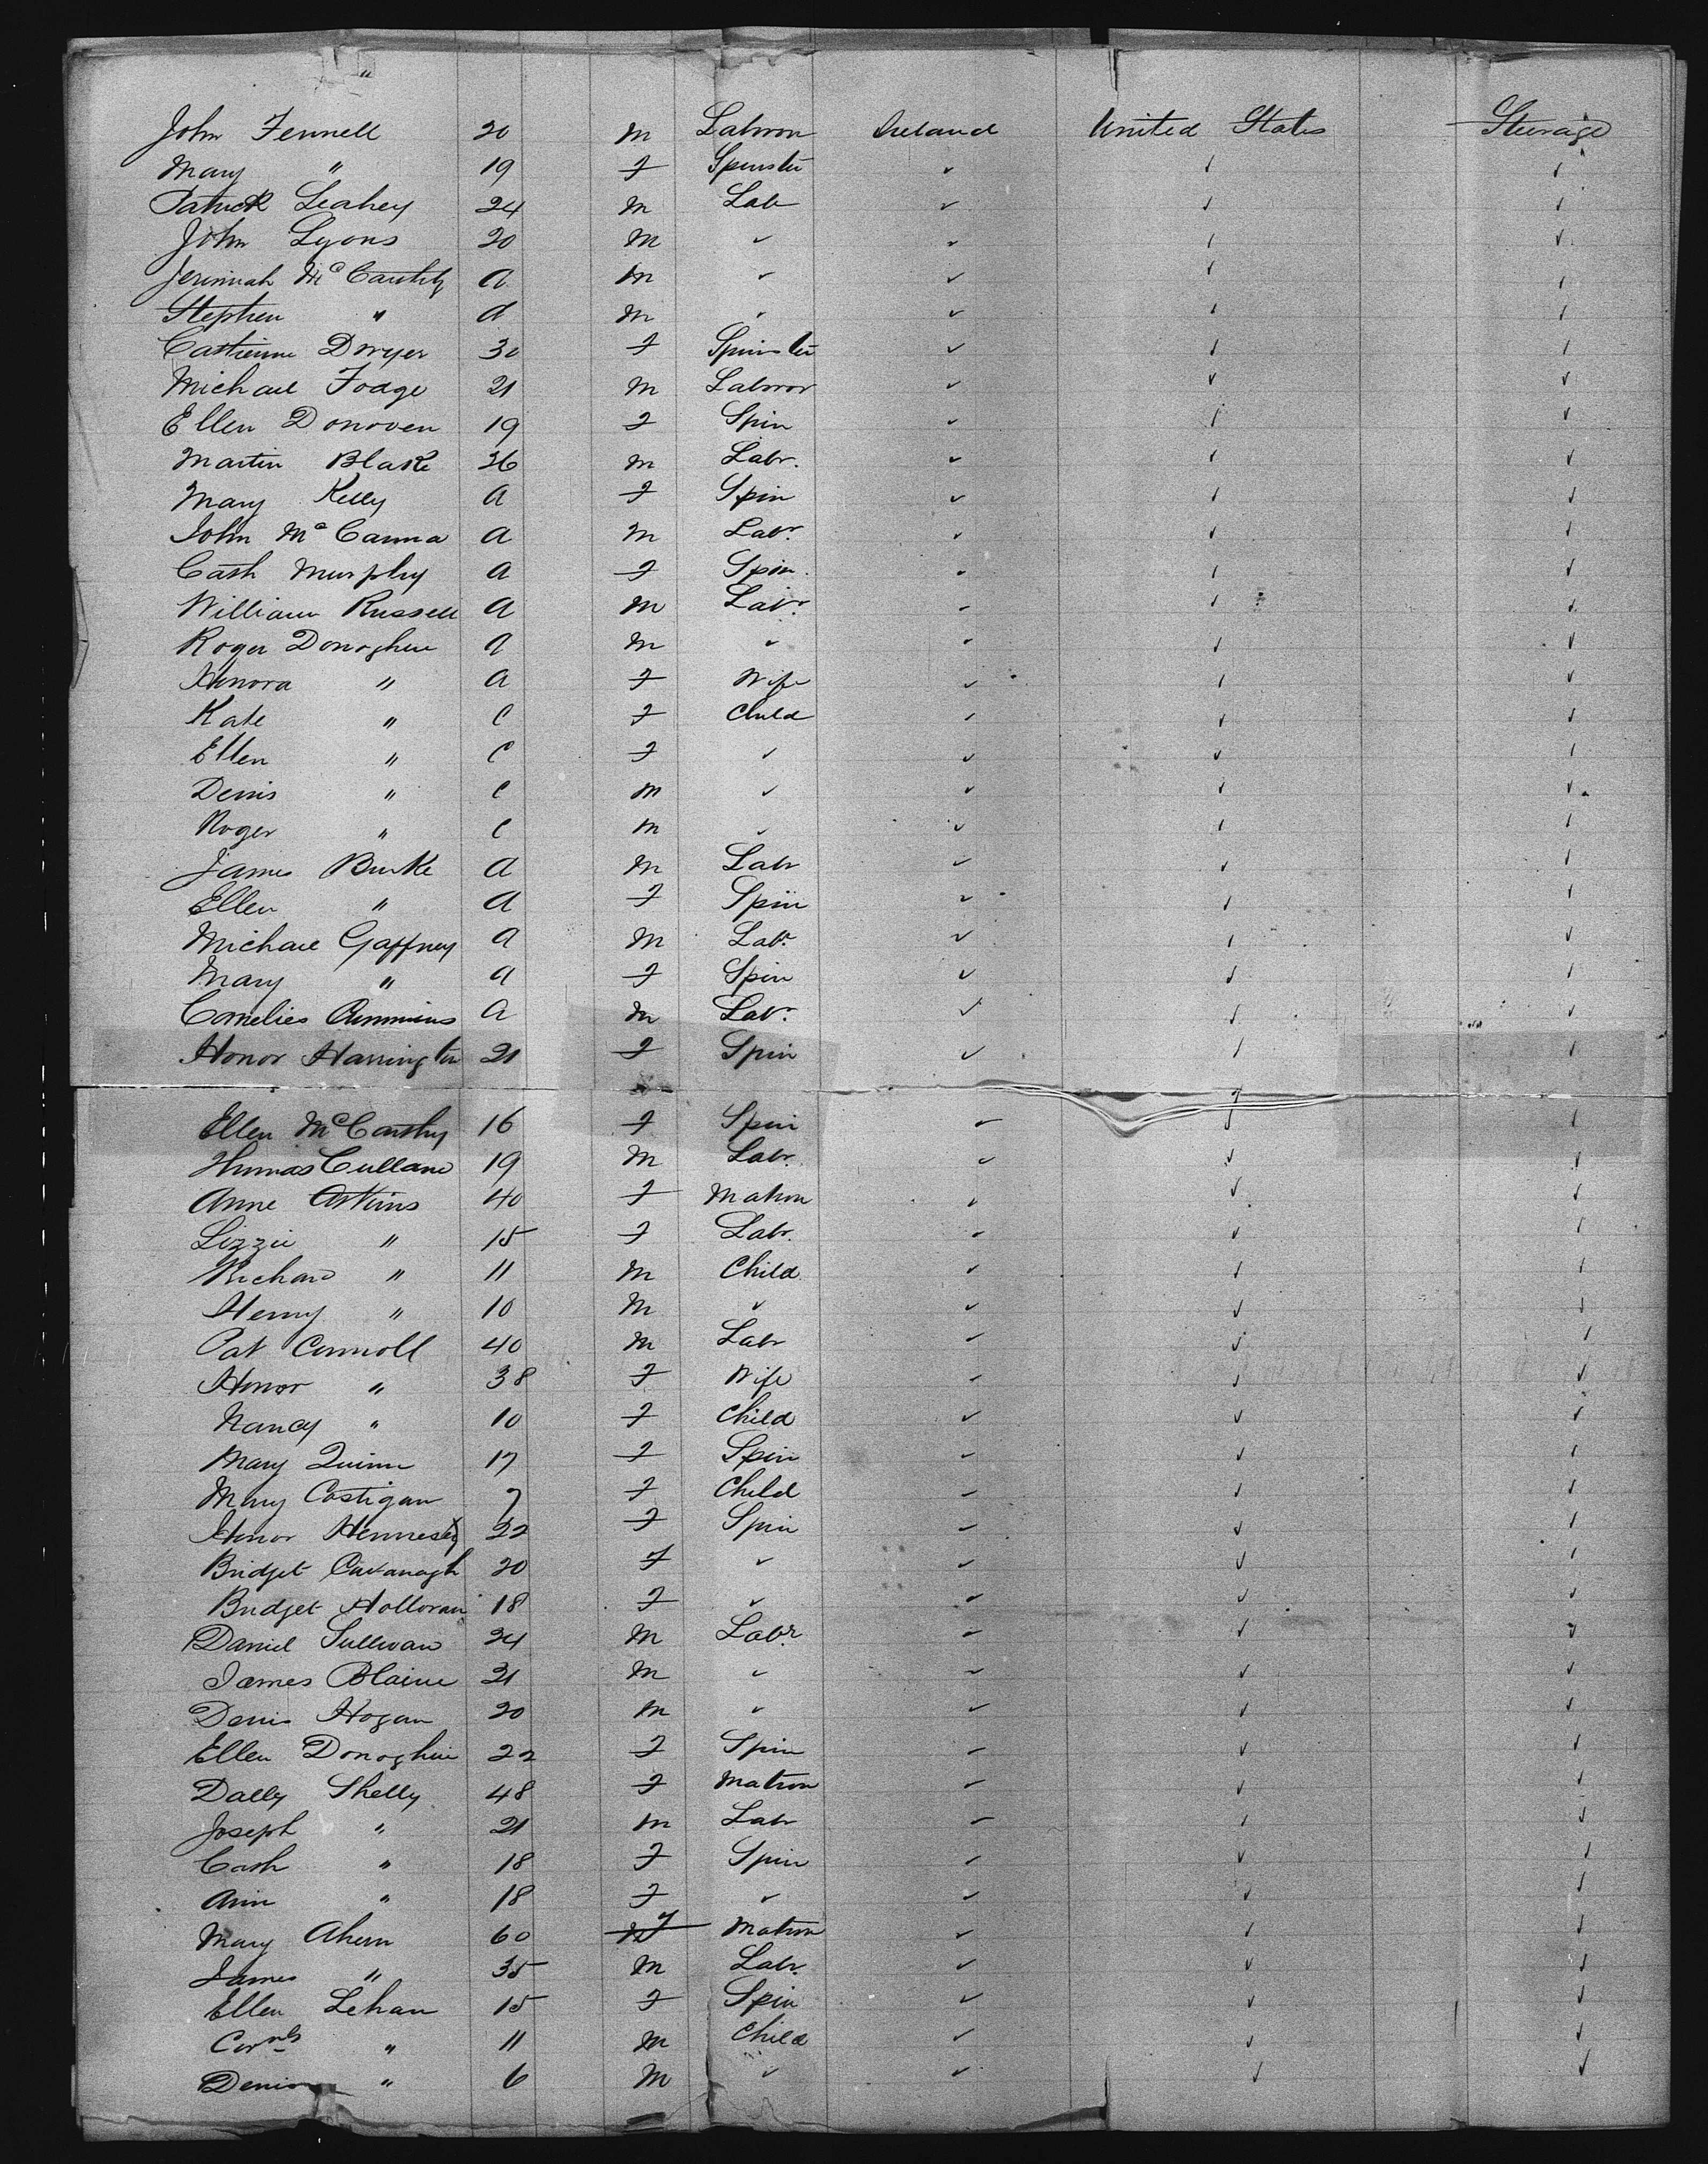 "
John Fennell 20 m Labror Ireland United States Steerage
Mary " 19 F Spinster ✓ ✓ ✓
Patrick Leahey 24 m Lab ✓ ✓ ✓
John Lyons 20 m ✓ ✓ ✓ ✓
Jerimiah McCarthy a m ✓ ✓ ✓ ✓
Stephen " a m ✓ ✓ ✓ ✓
Catherine Dwyer 30 F Spinster ✓ ✓ ✓
Michael Fodge 21 m Labror ✓ ✓ ✓
Ellen Donoven 19 F Spin ✓ ✓ ✓
Martin Blake 36 m Labr. ✓ ✓ ✓
Mary Kelly a F Spin ✓ ✓ ✓
John McCanna a m Labr. ✓ ✓ ✓
Cath Murphy a F Spin. ✓ ✓ ✓
William Russell a m Labr. ✓ ✓ ✓
Roger Donoghue a m ✓ ✓ ✓ ✓
Honora " a F Wife ✓ ✓ ✓
Kate " C F Child ✓ ✓ ✓
Ellen " C F ✓ ✓ ✓ ✓
Denis " C m ✓ ✓ ✓ ✓
Roger " C m ✓ ✓ ✓ ✓
James Burke a m Labr ✓ ✓ ✓
Ellen " a F Spin ✓ ✓ ✓
Michael Gaffney a m Labr. ✓ ✓ ✓
Mary " a F Spin ✓ ✓ ✓
Cornelies Cummins a m Labr. ✓ ✓ ✓
Honor Harrington 21 F Spin ✓ ✓ ✓
Ellen McCarthy 16 F Spin ✓ ✓ ✓
Thomas Cullane 19 m Labr. ✓ ✓ ✓
Anne Atkins 40 F Matron ✓ ✓ ✓
Lizzie " 15 F Labr. ✓ ✓ ✓
Richard " 11 m Child ✓ ✓ ✓
Henry " 10 m ✓ ✓ ✓ ✓
Pat Connoll 40 m Labr ✓ ✓ ✓
Honor " 38 F Wife ✓ ✓ ✓
Nancy " 10 F Child ✓ ✓ ✓
Mary Quinn 17 F Spin ✓ ✓ ✓
Mary Costigan 7 F Child ✓ ✓ ✓
Honor Hennesey 22 F Spin ✓ ✓ ✓
Bridget Cavanagh 20 F ✓ ✓ ✓ ✓
Bridget Holloran 18 F ✓ ✓ ✓ ✓
Daniel Sullivan 24 m Labr. ✓ ✓ ✓
James Blaine 21 m ✓ ✓ ✓ ✓
Denis Hogan 20 m ✓ ✓ ✓ ✓
Ellen Donoghue 22 F Spin ✓ ✓ ✓
Dally Shelly 48 F Matron ✓ ✓ ✓
Joseph " 21 m Labr ✓ ✓ ✓
Cath " 18 F Spin ✓ ✓ ✓
Ann " 18 F ✓ ✓ ✓ ✓
Mary Ahern 60 F Matron ✓ ✓ ✓
James " 35 m Labr. ✓ ✓ ✓
Ellen Lehan 15 F Spin ✓ ✓ ✓
Cornls " 11 m Child ✓ ✓ ✓
Denis " 6 m ✓ ✓ ✓ ✓